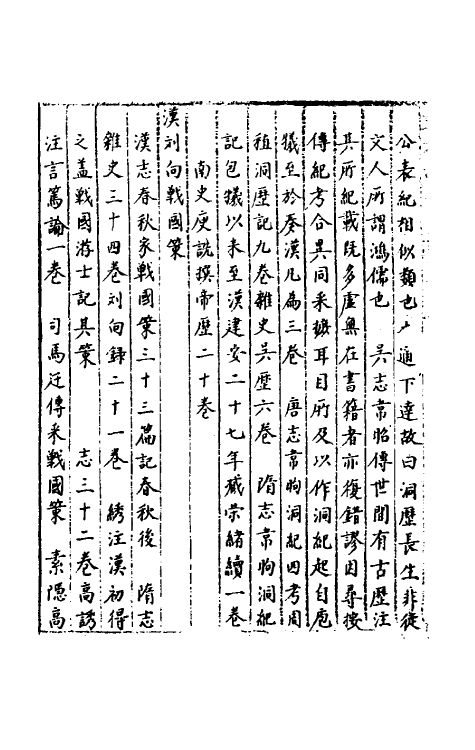 公表紀相似類也上通下達故曰洞歷長生非徒
文人所謂鴻儒也　吳志韋昭傳世間有古歷注
其所紀載既多虛無在書籍者亦復錯謬因尋按
傳紀考合異同采摭耳目所及以作洞紀起自庖
犧至於秦漢凡為三卷　唐志韋昭洞紀四考周
穜洞歷記九卷雜史吳歷六卷　隋志韋昭洞紀
記包犧以來至漢建安二十七年臧榮緒續一卷
南史庾詵撰帝歷二十卷
漢劉向戰國策
漢志春秋家戰國策三十三篇記春秋後　隋志
雜史三十四卷劉向錄二十一卷　綉注漢初得
之蓋戰國游士記其策　志三十二卷高誘
注言篤論一卷　司馬迁傳釆戰國策　素隱高